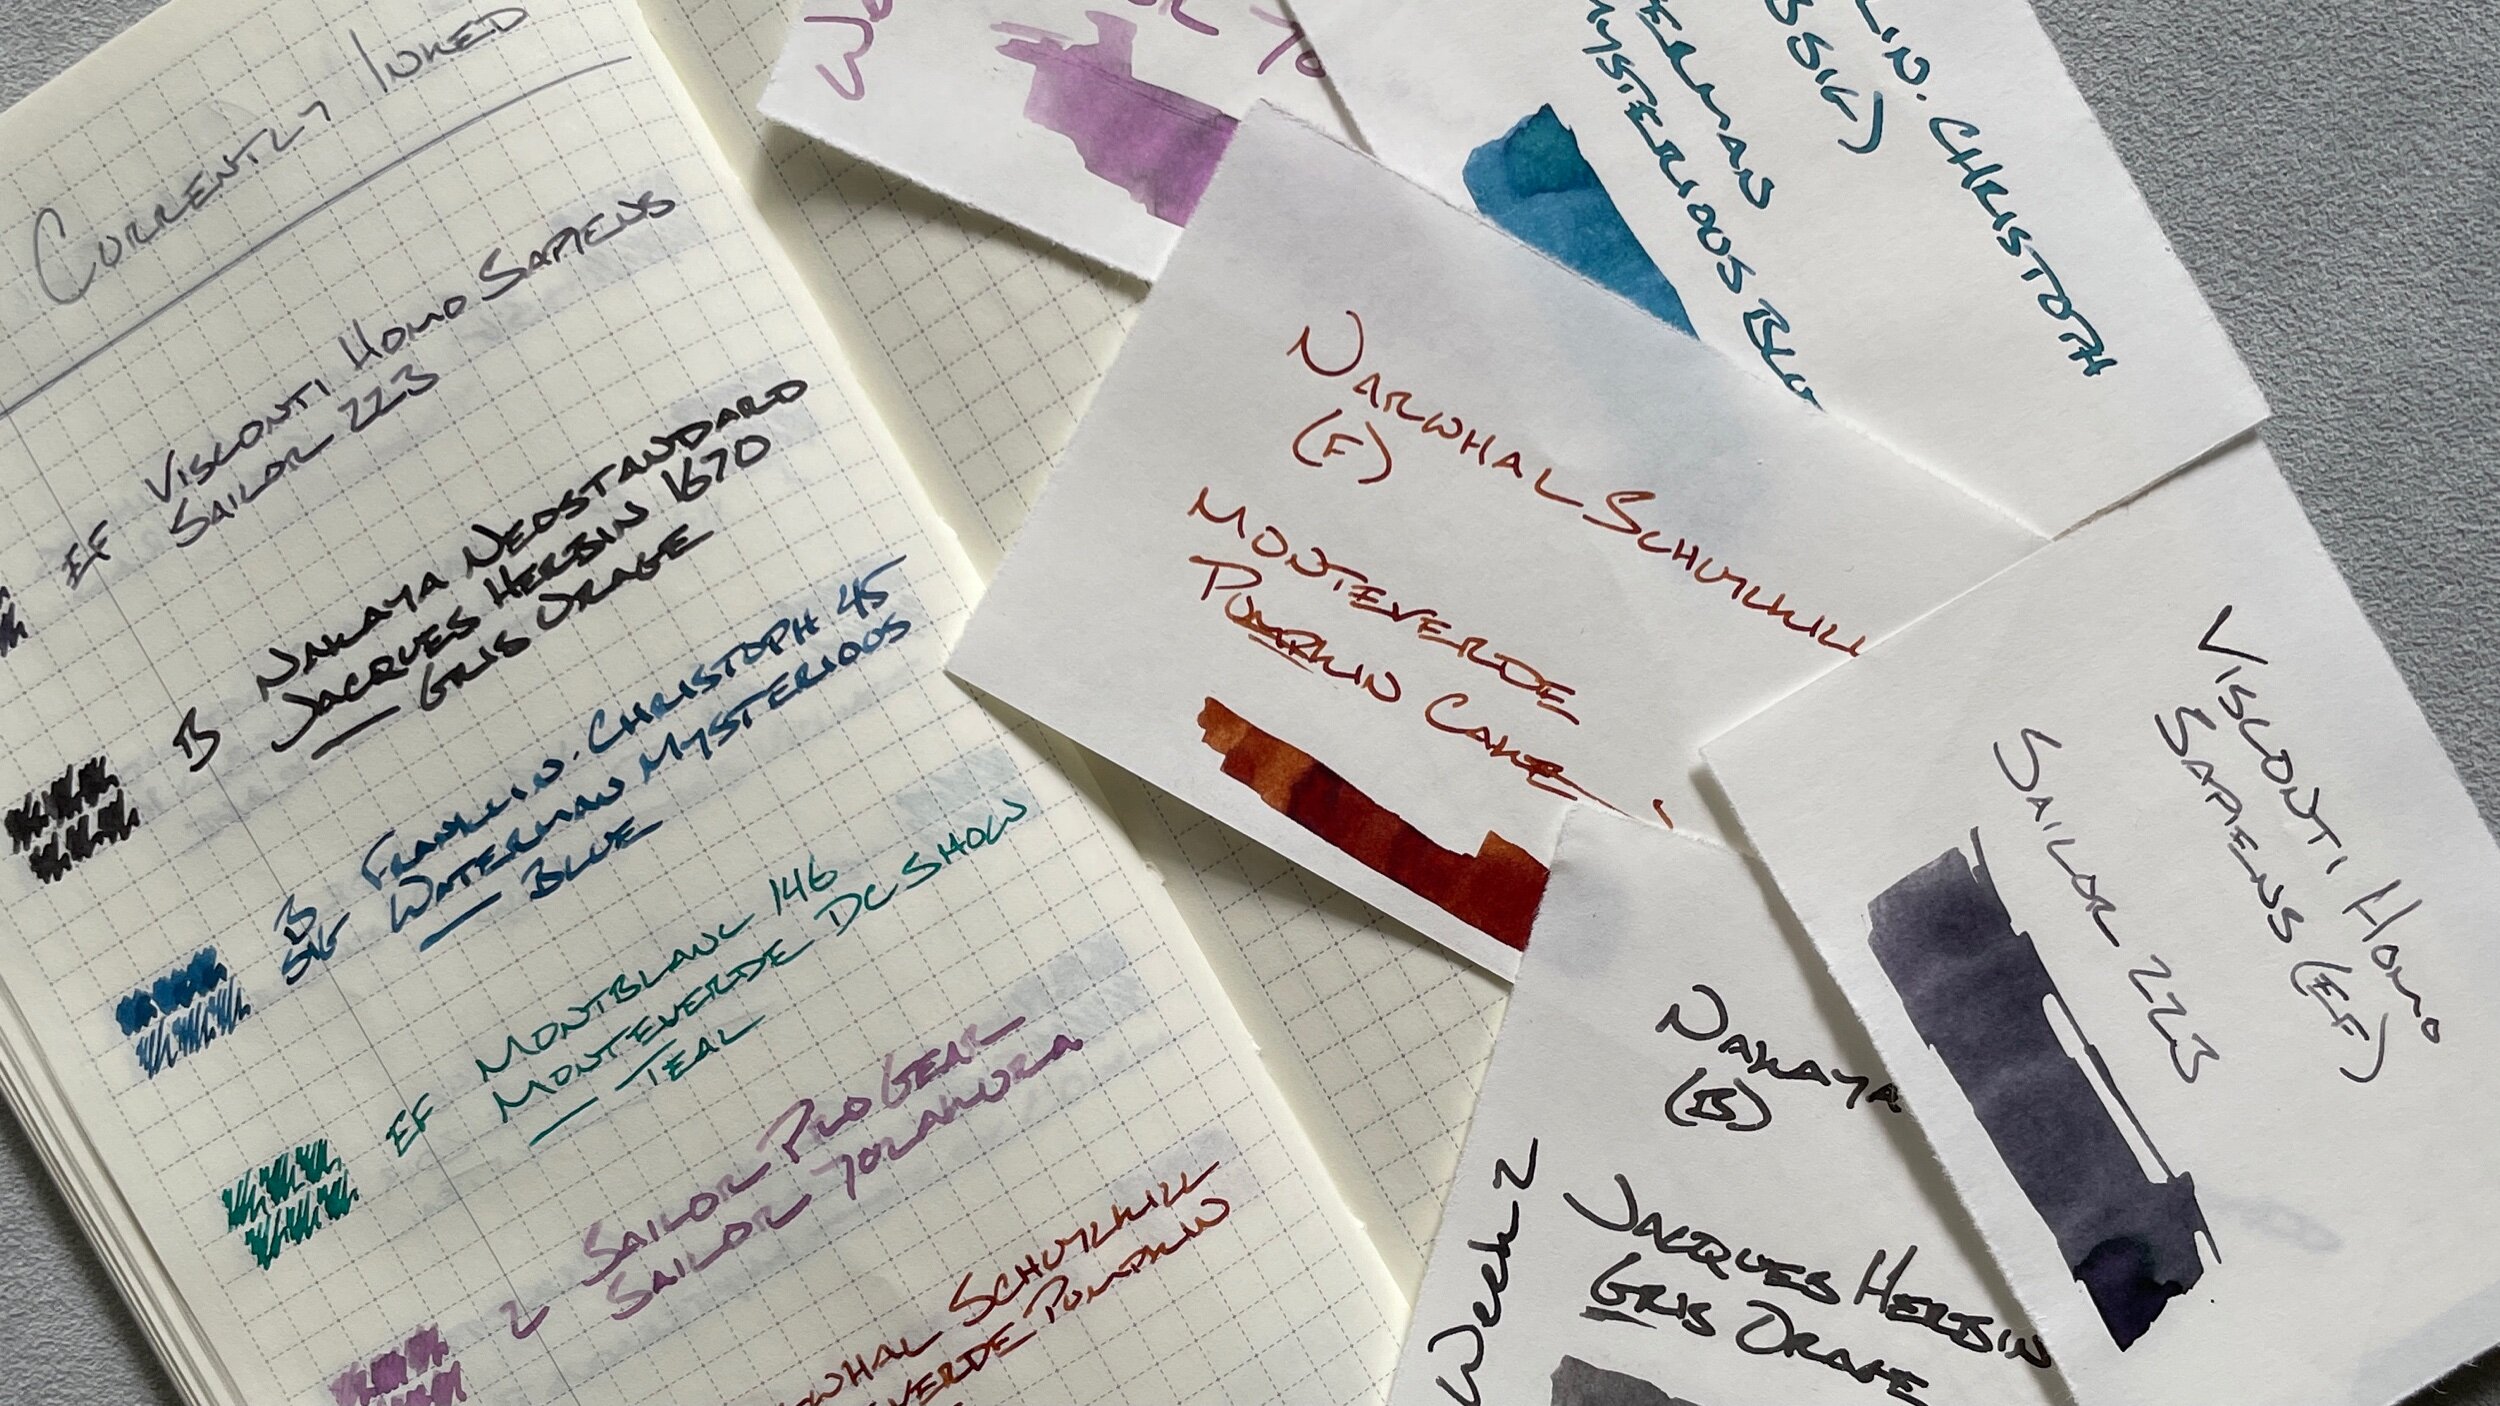 CURRENTLY INKED
EF VISCONTI HOMO SAPIENS
SAILOR 223
B NAKAYA NEOSTANDARD
JACQUES HERBIN 1670
— GRIS ORAGE
B SIG FRANKLIN. CHRISTOPH 45
WATERMAN MYSTERIOUS
— BLUE
EF MONTBLANC 146
MONTEVERDE DC SHOW
— TEAL
Z SAILOR PRO GEAR
SAILOR YOZAKURA
WHAL SCHUYLKILL
VERDE PUMPKIN
LIN. CHRISTOPH
B SIG)
ERMAN
MYSTERIOUS BLU
NARWHAL SCHUYLKILL
(F)
MONTEVERDE
PUMPKIN CAKE
VISCONTI HOMO
SAPIENS (EF)
SAILOR 223
NAKAYA
(B)
JACQUES HERBIN
GRIS ORAGE
Week 2